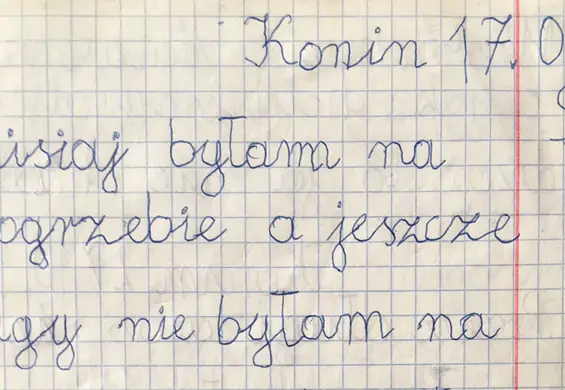 Konin 17.0
isiaj byłam na
ogrzebie a jeszcze
gy nie byłam na